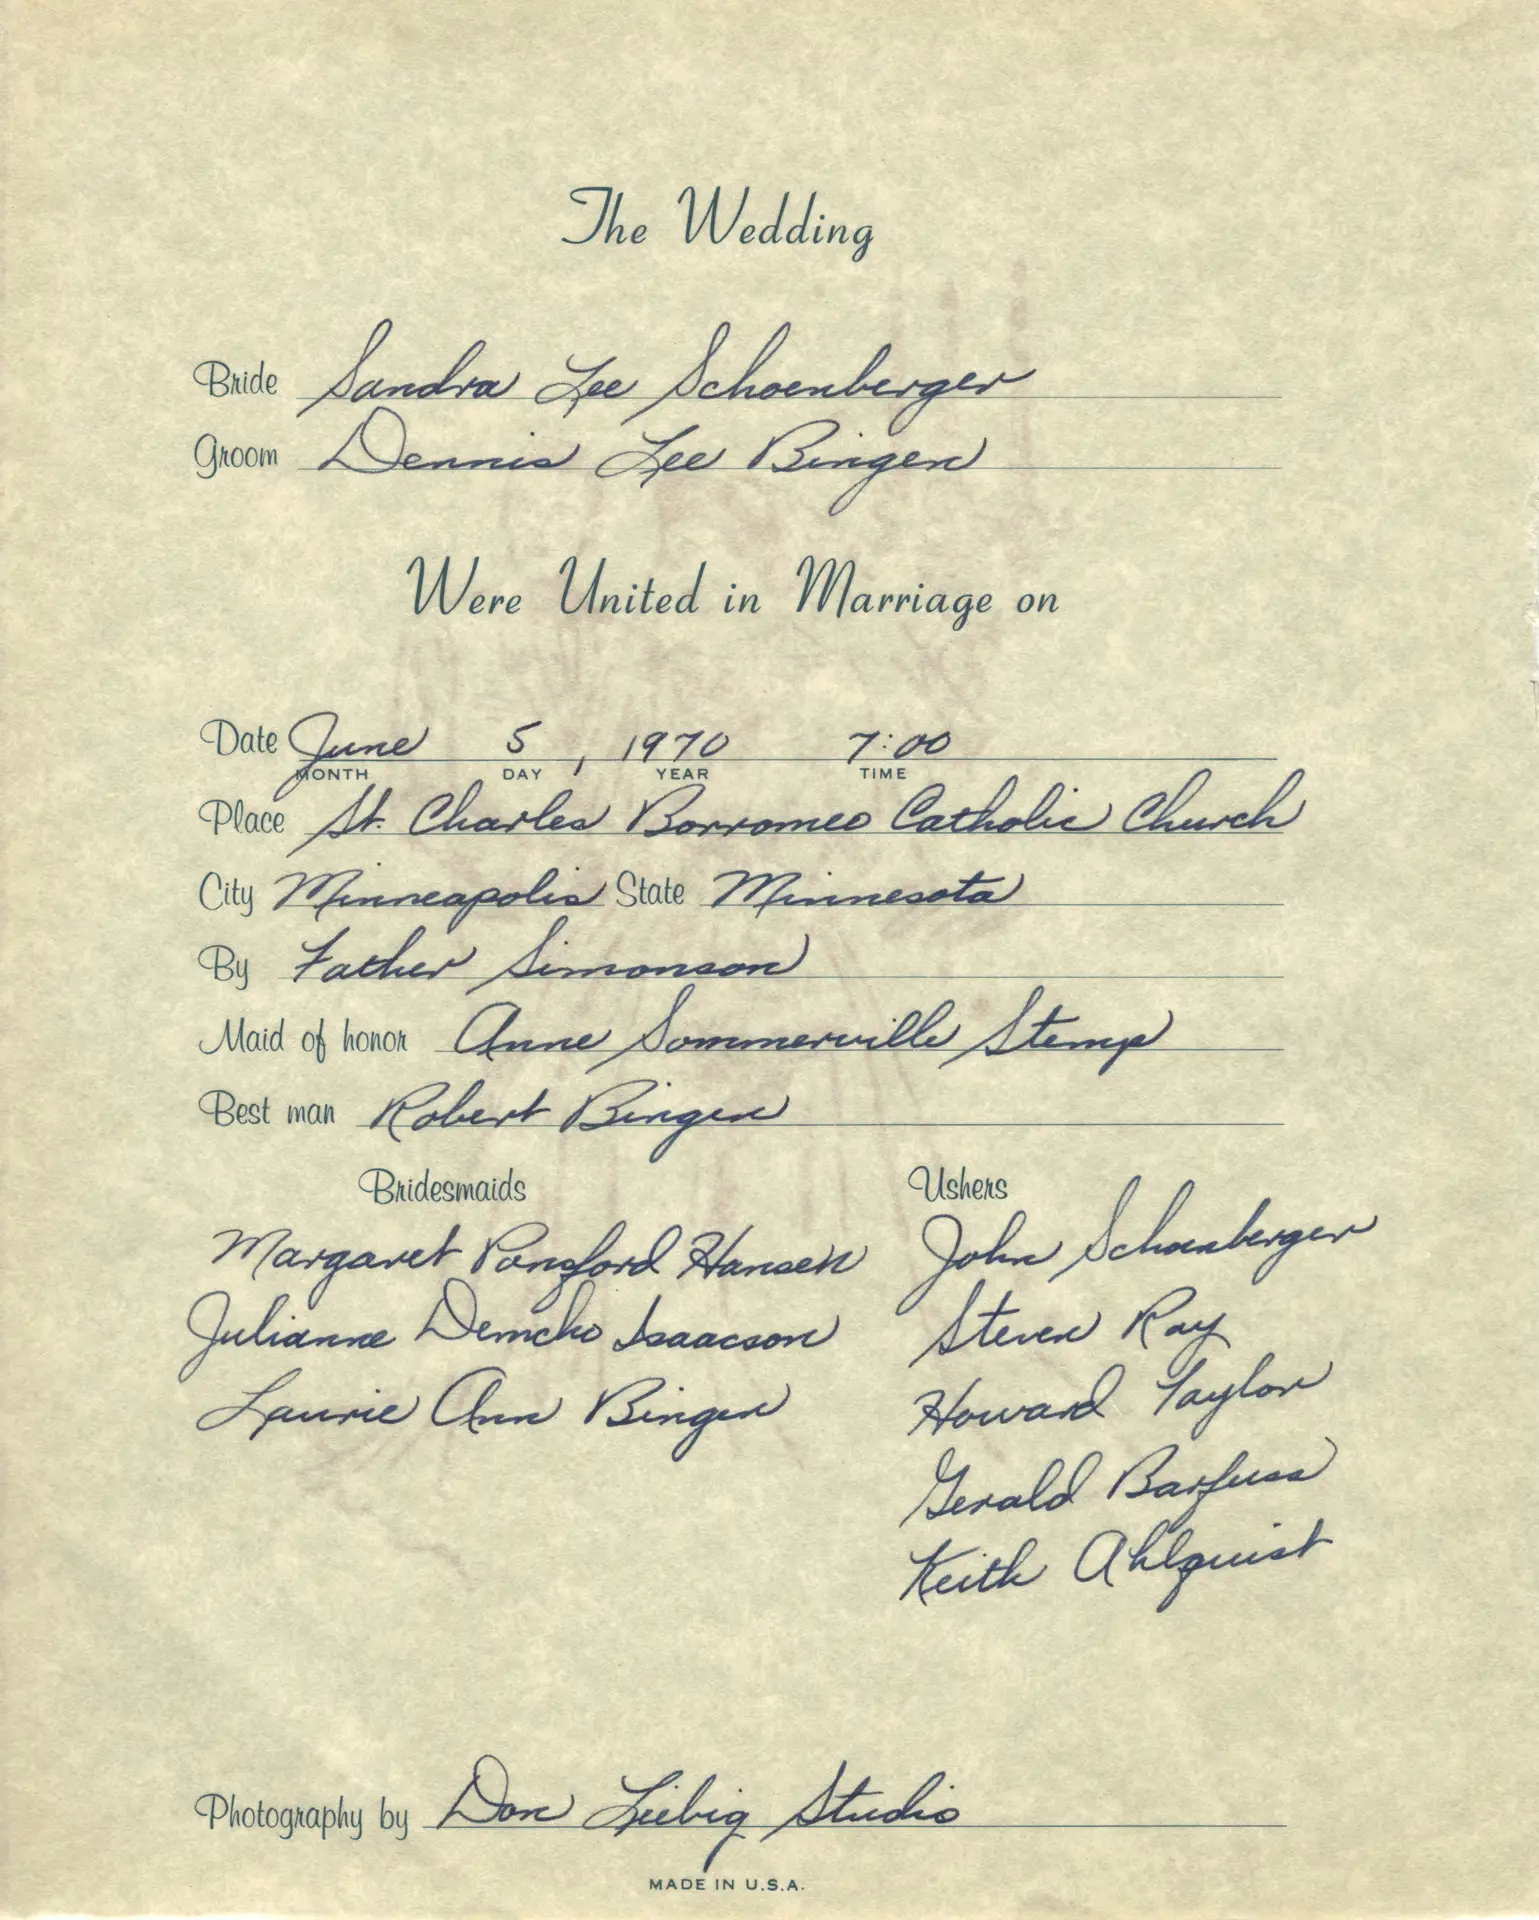 The Wedding
Bride Sandra Lee Schoenberger
Groom Dennis Lee Bingen
Were United in Marriage on
Date June 5, 1970 7:00
MONTH DAY YEAR TIME
Place St. Charles Borromeo Catholic Church
City Minneapolis State Minnesota
By Father Simonson
Maid of honor Anne Sommerville Stemp
Best man Robert Bingen
Bridesmaids Ushers
Margaret Ponsford Hansen John Schoenberger
Julianne Demcho Isaacson Steven Ray
Laurie Ann Bingen Howard Taylor
Gerald Barfuss
Keith Ahlquist
Photography by Don Liebig Studio
MADE IN U.S.A.